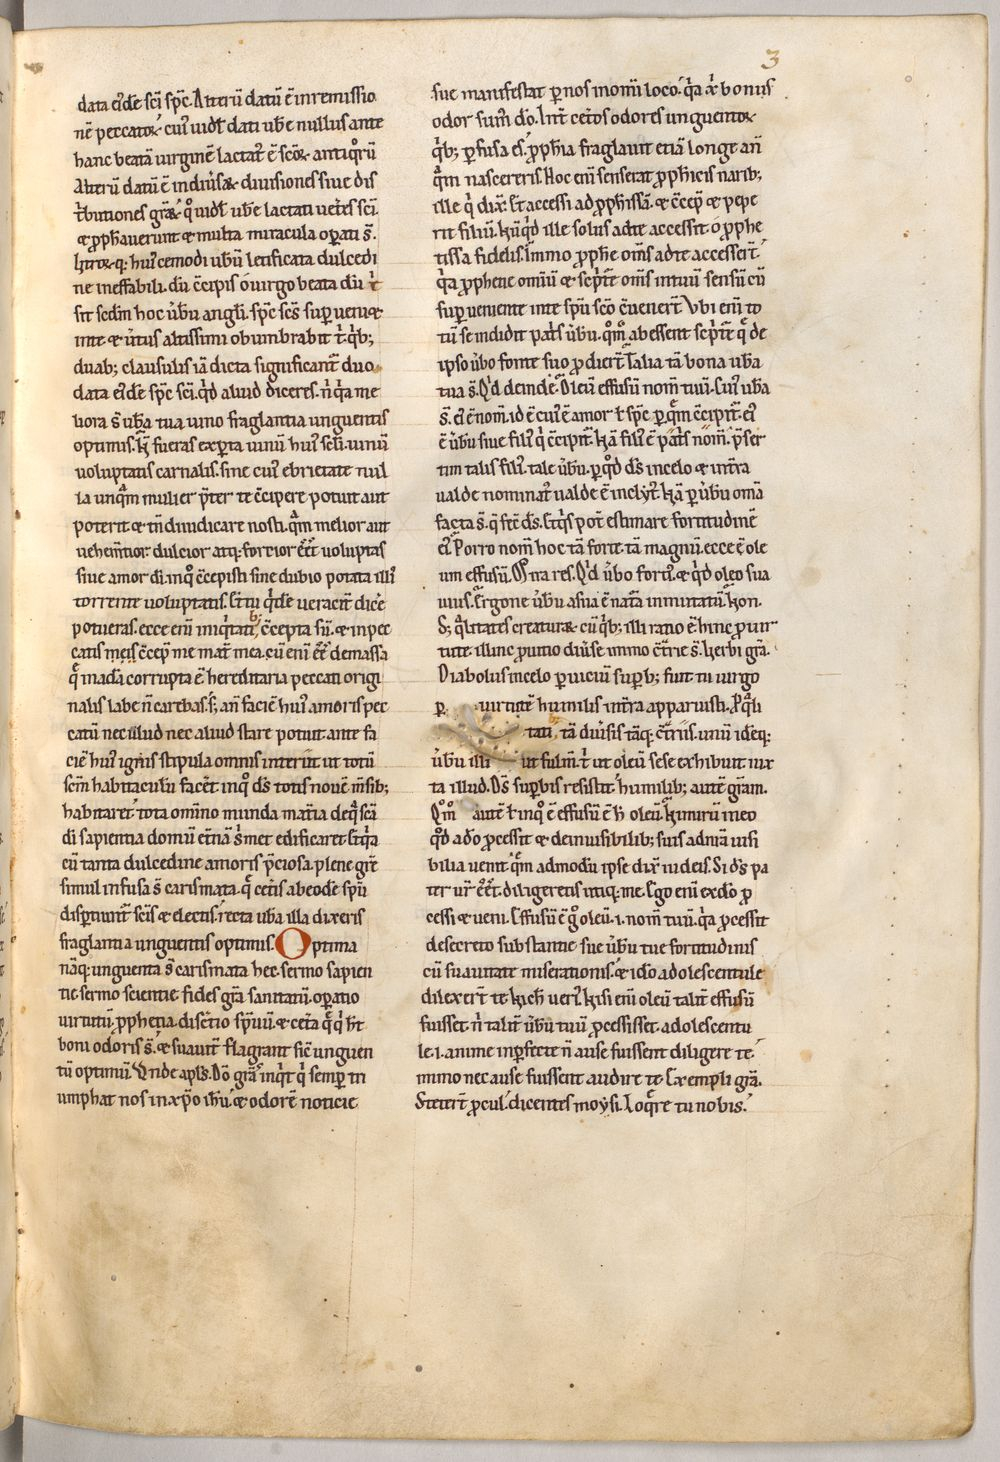 3
data eiusdē sc̄i sp̄c. Alterū datū ē in remissio
nē peccatoꝝ cui᷒ uidel᷑ dati ub̄e nullus ante
hanc beatā uirginē lactat᷑ ē sc̄oꝝ antiq̊rū
Alterū datū ē in diuisaꝝ diuisiones siue dis
t̄butiones gr̄aꝝ q̊ uidel᷑ ub̄e lactati uet̄es sc̄i
⁊ ꝓph̄auerunt ⁊ multa miracula oꝑati s̄.
Vtroꝝq: hui᷒cemodi ub̄ū letificata dulcedi
ne ineffabili. dū c̄cipis ó uirgo beata dū t᷑
sit scdm̄ hoc ūbū angl̄i. sp̄c sc̄s suꝑueniꝫ
in te ⁊ uirtus altissimi obumbrabit t᷑. q̇b;
duab; clausulis iā dicta significant᷑ duo
data eiusdē sp̄c sc̄i. q̇d aliud diceres. n̄ q̇a me
liora s̄ ub̄a tua uino fraglantia unguentis
optimis. N̄ fueras exꝑta uinū hui᷒ sc̄li. uinū
uoluptatis carnalis. sine cui᷒ ebrietate nul
la unq̄m mulier p̄ter te c̄cipere potuit aut
poterit ⁊ tn̄ diiudicare nosti. q̄m melior aut
uehem̄tior. dulcior atq: fortior eēt uoluptas
siue amor dī. inq̊ c̄cepisti sine dubio potata illi᷒
torrente uoluptatis. Et tu q̇dē ueracit᷑ dic̄e
potueras. ecce enī iniq̇tatib; c̄cepta sū. ⁊ in pec
catis meis c̄cep̄ me mat᷑ mea. cū enī eēs de massa
q̄ in adā corrupta ē hereditaria peccati origi
nalis labe n̄ carebas. s; an̄ faciē hui᷒ amoris pec
catū nec illud nec aliud stare potuit. ante fa
ciē hui᷒ ignis stipula omnis interiit ut totū
sc̄m habitaculū facēt inq̊ d̄s totis nouē m̄sib;
habitaret. tota om̄ino munda mat̄ia de q̄ sc̄a
dī sapientia domū et̄nā s̄imet edificaret. Et q̇a
cū tanta dulcedine amoris p̄ciosa. plene gr̄e
simul infusa s̄ carismata. q̄ cet̄is ab eodē sp̄u
disꝑtiunt᷑ sc̄is ⁊ electis. recta ub̄a illa dixeris
fraglantia unguentis optimis. Optima
nāq: unguenta s̄ carismata hec. sermo sapien
tie. sermo scientie. fides. gr̄a sanitatū. oꝑatio
uirtutū. ꝓphetia. discr̄tio sp̄uū. ⁊ cet̄a q̄q̄ h᷑t
boni odoris s̄. ⁊ suauit᷑ flagrant sic̄ unguen
tū optimū. Vnde apl̄s. Dō gr̄as inq̇t q̇ semꝑ tri
umphat nos in xp̄o ih̄u. ⁊ odorē noticie
sue manifestat ꝑ nos in om̄i loco. q̇a xp̄i bonus
odor sum᷒ dō. Int᷑ cet̄os odores unguentoꝝ
q̇b; ꝑfusa es. ꝓph̄ia fraglauit etiā longe an̄
q̄m nascereris. Hoc enī senserat ꝓph̄icis narib;
ille q̇ dix̄. Et accessi ad ꝓph̄issā. ⁊ c̄cep̄ ⁊ pepe
rit filiū. Nūq̇d ille solus ad te accessit ó ꝓphe
tissa fidelis. Immo ꝓph̄e om̄s ad te accesser̄t
q̇a ꝓphetie omiū ⁊ sc̄pt̄e om̄s in tuū sensū cū
suꝑueniente in te sp̄u sc̄o c̄uener̄t. Vbi enī to
tū se indidit pat̄s ūbū. q̊m̊ abessent sc̄pt̄e q̄ de
ipso ūbo fonte suo ꝓdier̄t. Talia tā bona ub̄a
tua s̄. Q̇d deinde. Oleū effusū nom̄ tuū. Cui᷒ ub̄a
s̄. ei᷒ ē nom̄. id ē cui᷒ ē amor ł sp̄c. ꝑ q̄m c̄cipit᷑. ei᷒
ē ūbū siue fili᷒ q̇ c̄cipit᷑. Nā fili᷒ ē pat̄s nom̄. p̄ser
tim talis fili᷒. tale ūbū. ꝑ q̊d d̄s in celo ⁊ in t̄ra
ualde nominat᷑ ualde ē inclyt᷒. Nā ꝑ ūbū om̄ia
facta s̄. q̄ fec̄ d̄s. Et q̇s pot᷑ estimare fortitudinē
ei᷒. Porro nom̄ hoc tā forte tā magnū. ecce ē ole
um effusū. Mira res. Q̇d ūbo forti᷒. ⁊ q̇d oleo sua
uius. Ergone ūbū a sua ē nat̄a inmutatū. Non.
S; q̄litates creaturaꝝ cū q̇b; illi ratio ē. hinc ꝓ uir
tute. illinc ꝓ uitio diūse immo c̄trie s̄. Verbi gr̄a.
Diabolus in celo ꝑ uiciū suꝑb; fuit. tu uirgo
ꝑ uirtutē humilis in t̄ra apparuisti. P q̄li
tati tā diuersis tāq: c̄triis. unū idēq:
ūbū illi ut fulm̄. t᷑ ut oleū sese exhibuit. iux
ta illud. D̄s suꝑbis resistit. humilib; autē gr̄am.
Q̊m̊ autē ł inq̊ ē effusū ē h̄ oleū. Nimirū in eo
q̊d a dō ꝓcessit ⁊ de inuisibilib; suis ad n̄rā uisi
bilia uenit. q̄m admodū ipse dix̄ iudeis. Si d̄s pa
ter ur̄ eēt. diligeretis utiq: me. Ego enī ex dō ꝓ
cessi ⁊ ueni. Effusū ē g̊ oleū .i. nom̄ tuū. q̇a ꝓcessit
de secreto substantie sue ūbū tue fortitudinis
cū suauitate miserationis. ⁊ idō adolescentule
dilexer̄t te nich̄ ueri᷒. Nisi enī oleū talit᷑ effusū
fuisset. n̄ talit᷑ ūbū tuū ꝓcessisset. adolescentu
le .i. anime inꝑfecte n̄ ause fuissent diligere te.
immo nec ause fuissent audire te. Exempli gr̄a.
Steter̄t ꝓcul. dicentes moysi. Loq̄re tu nobis.